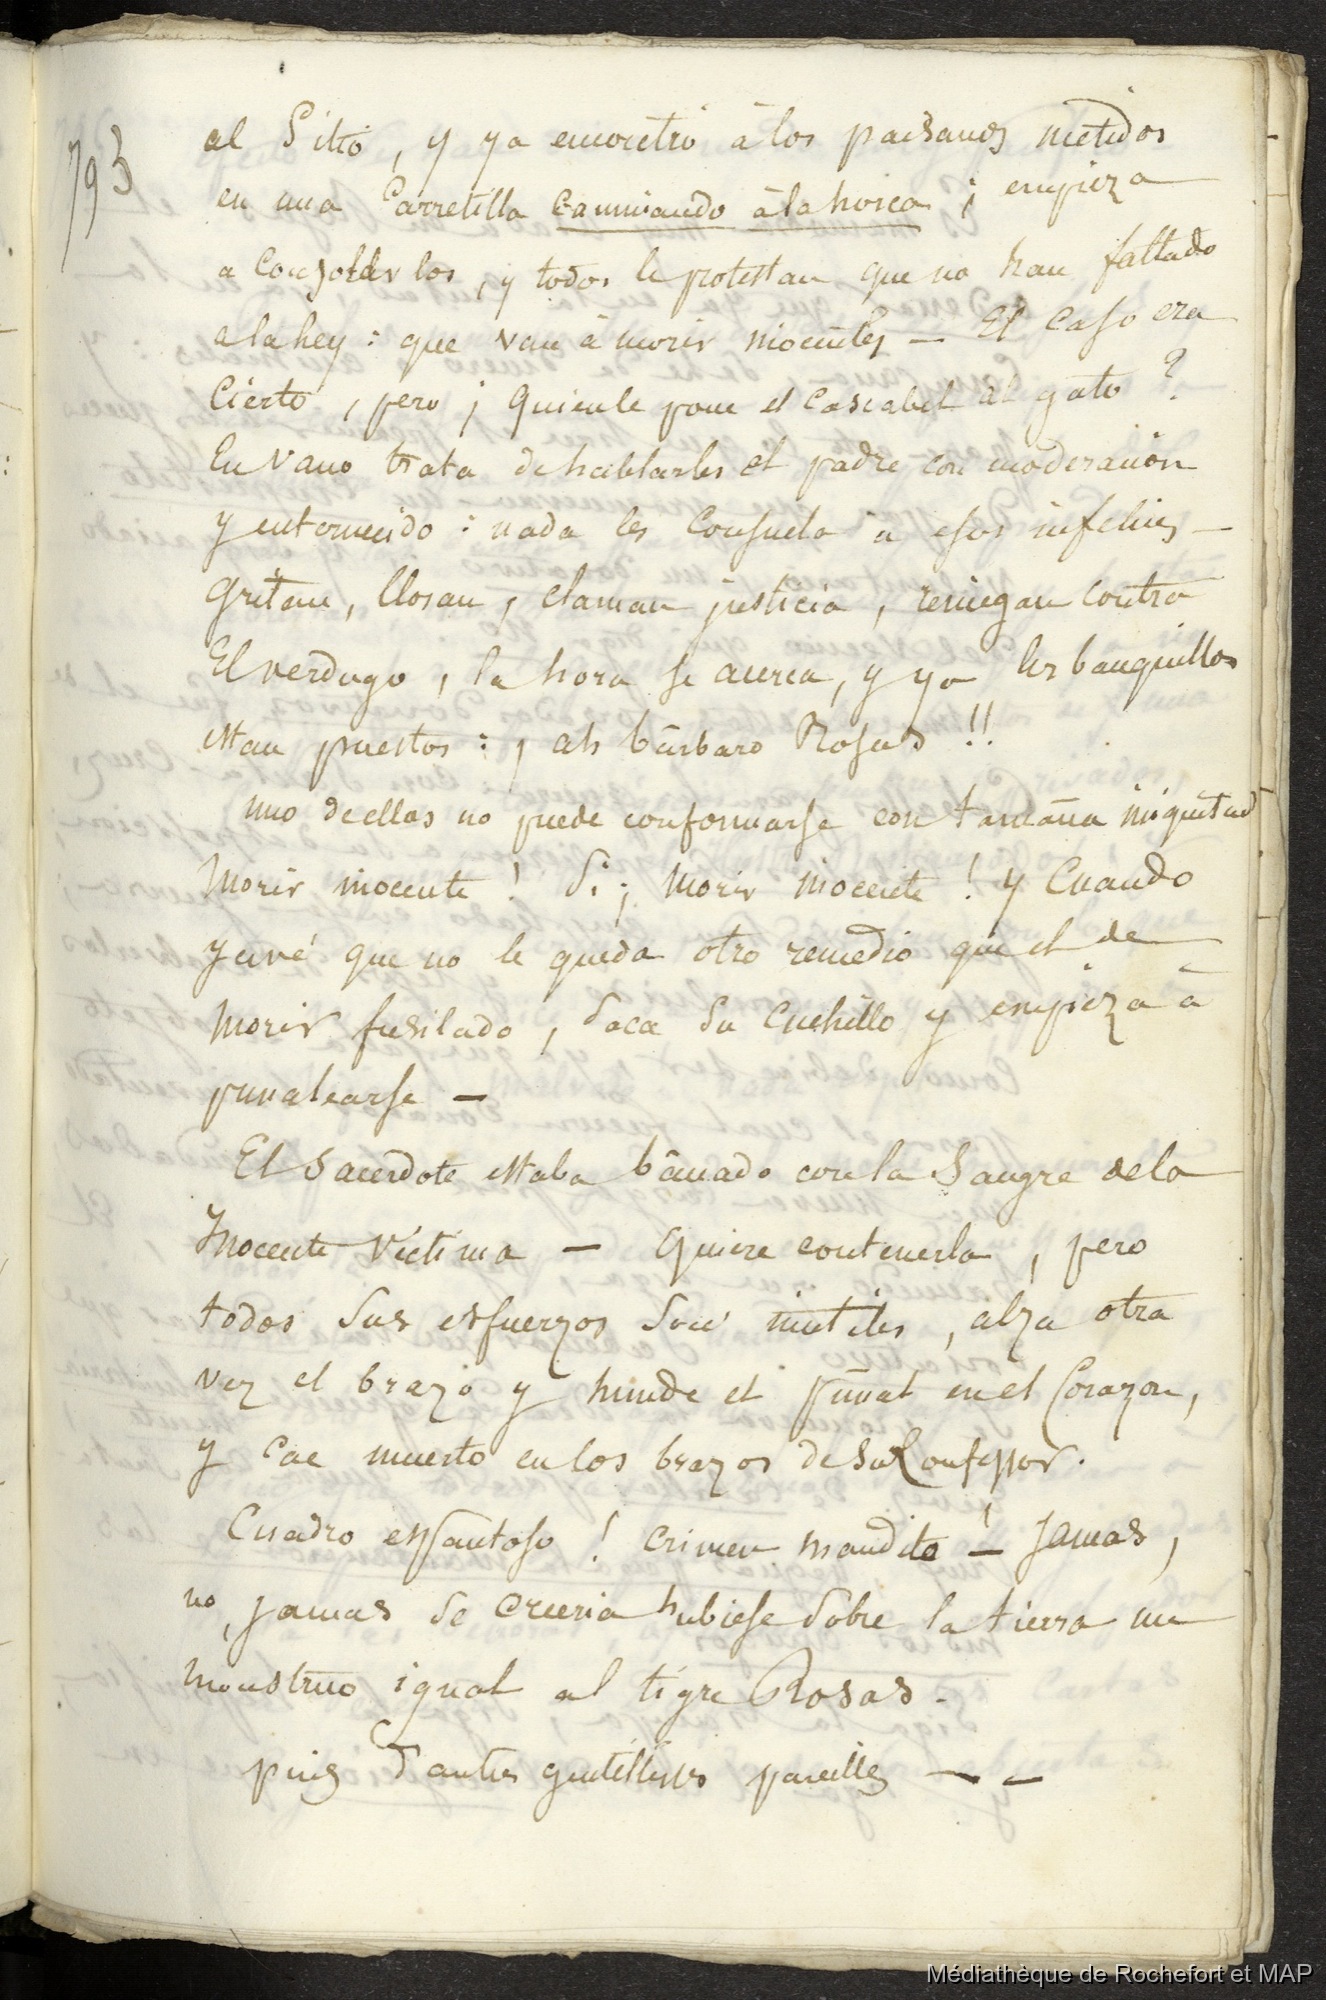 793
al Sitio, y ya encontró à los paisanos metidos
en una Carretilla caminando à la horca ; empieza
a consolarlos, y todos le protestan que no han faltado
a la ley : que van à morir inocentes — El caso era
Cierto, pero ¡ Quien le pone el cascabel al gato ?
En vano trata de hablarles el padre con moderacion
y enternecido : nada les consuela a esos infelices —
Gritan, lloran, claman justicia, reniegan contra
El verdugo, la hora se acerca, y ya los banquillos
estan puestos : ¡ ah bárbaro Rosas !!
uno de ellos no puede conformarse con tamaña iniquitad
Morir inocente ! Si ; Morir inocente ! y Cuando
ya vé que no le queda otro remedio que el de
Morir fusilado, Saca Su Cuchillo y empieza à
punalearse —
El Sacerdote estaba bañado con la Sangre de la
Inocente Victima — Quiere contenerla, pero
todos Sus esfuerzos Son inutiles, alza otra
vez el brazo y hunde el puñal en el Corazon,
y cae muerto en los brazos de su Confessor.
Cuadro espantoso ! Crimen maudito ! — Jamas,
no, jamas se creeria hubiese sobre la tierra un
monstruo igual al tigre Rosas.
puis d'autres gentillesses pareilles — —
Médiathèque de Rochefort et MAP